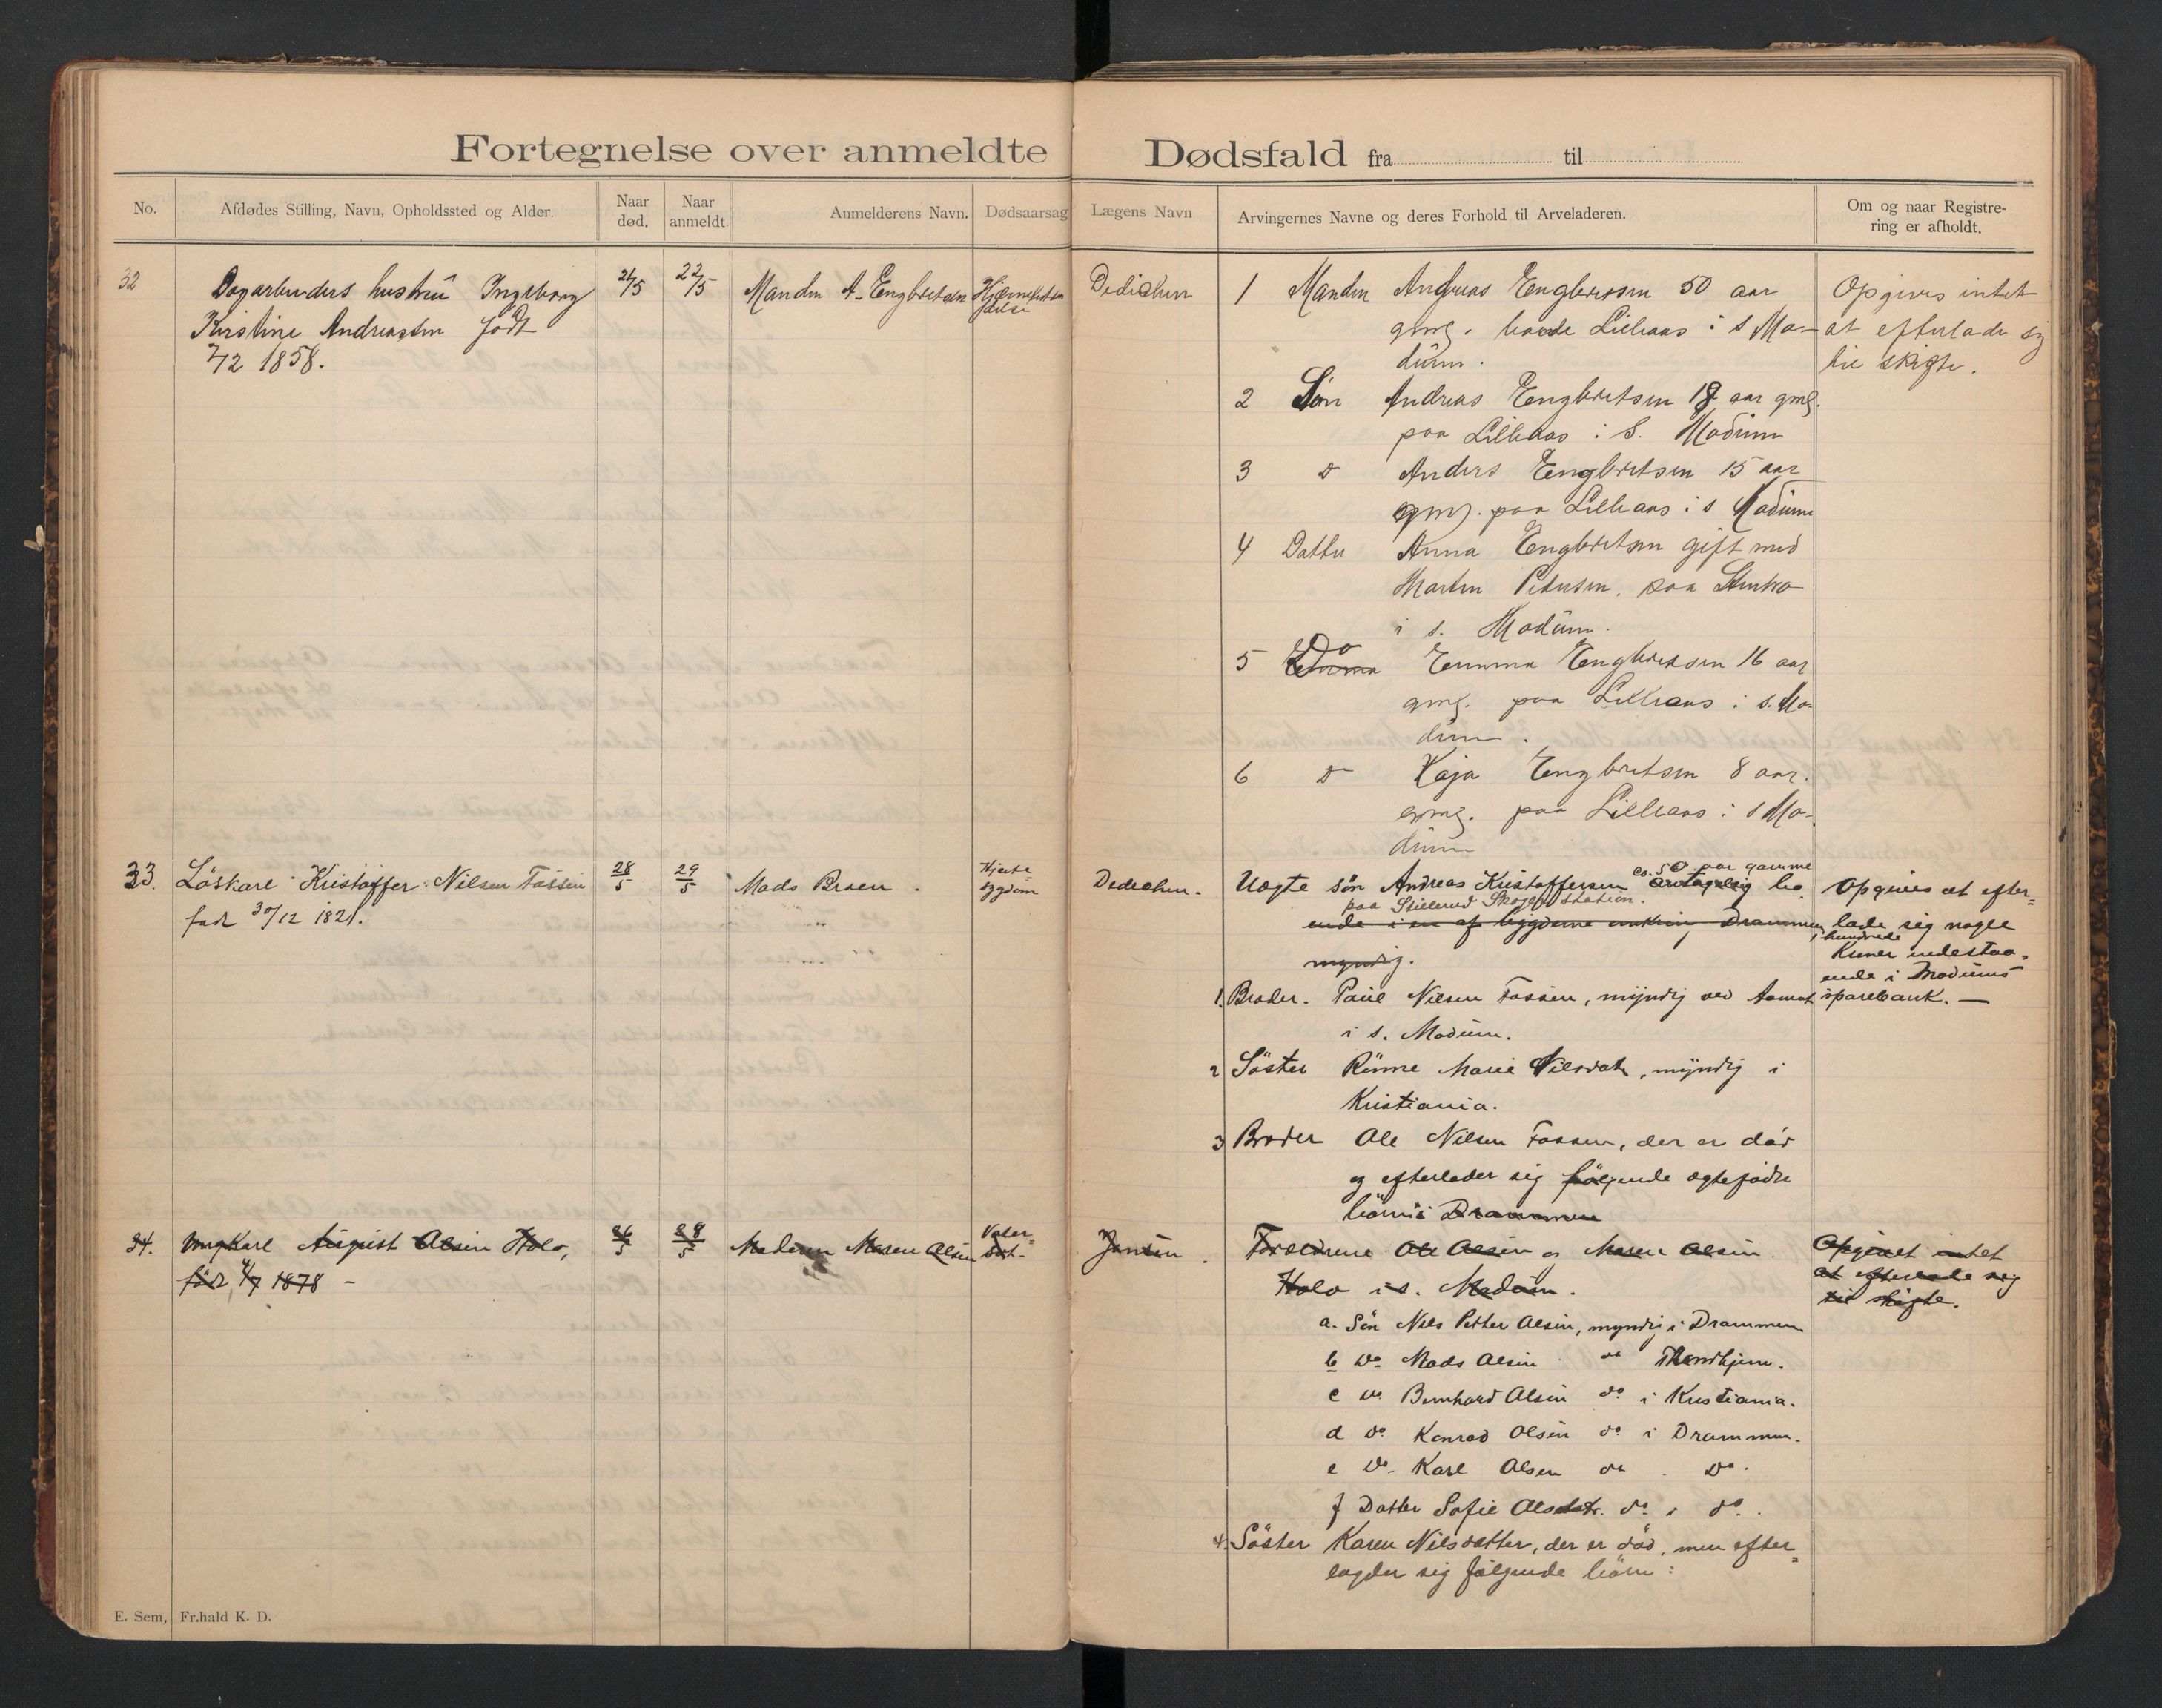 Fortegnelse over anmeldte Dødsfald fra til
No.
Afdødes Stilling, Navn, Opholdssted og Alder.
Naar død.
Naar anmeldt
Anmelderens Navn.
Dødsaarsag
Lægens Navn
Arvingernes Navne og deres Forhold til Arveladeren.
Om og naar Registre-
ring er afholdt.
32
Dagarbeiders hustru Ingeborg
Kirstine Andreasen født
7/12 1858.
21/5
22/5
Manden A. Engbretsen
Dedichen
1 Manden Andreas Engbretsen 50 aar
gml. boende Lillaas i s Mo-
dum.
2 Søn Andreas Engbretsen 18 aar gml.
paa Lillaas i S. Modum
3 Do Anders Engbretsen 15 aar
gml. paa Lillaas i s Modum
4 Datter Anna Engbretsen gift med
Martin Petersen, paa
i s. Modum.
5 Emma Do Emma Engbretsen 16 aar
gml. paa Lillaas i s. Mo-
dum.
6 Do Kaja Engbretsen 8 aar.
gml. paa Lillaas i s Mo-
dum
Opgives intet
at efterlade sig
til skifte.
33.
Løskarl Kristoffer Nilsen Fossen
født 30/12 1821.
28/5
29/5
Mads Braen.
Hjerte
sygdom
Dedichen.
Uægte søn Andreas Kristoffersen ca. 50 aar gamme
bo
paa Stillerud Skoger station.
ende i en af bygderne omkring Drammen
myndig.
1. Broder. Paul Nilsen Fossen, myndig ved Aamot
i s. Modum.
2 Søster Rønne Marie Nilsdatr, myndig i
Kristiania.
3 Broder Ole Nilsen Fossen, der er død
og efterlader sig følgende ægtefødte
børn: i Drammen
Opgives at efter=
lade sig nogle
hundrede
Kroner indestaa=
ende i Modums
sparebank. —
34.
Ungkarl August Olsen Holo,
født 4/7 1878 —
26/5
28/5
Madam Maren Olsen
Jensen.
Forældrene Ole Olsen og Maren Olsen.
Holo i s. Modum.
Opgivet intet
at efterlade sig
til skifte.
a. Søn Nils Petter Olsen, myndig i Drammen
b Do Mads Olsen do Throndhjem.
c Do Bernhard Olsen do i Kristiania.
d Do Konrad Olsen do i Drammen.
e Do Karl Olsen do . Do.
f Datter Sofie Olsdatr. do i do.
4. Søster Karen Nilsdatter, der er død, men efter=
lagder sig følgende børn:
E. Sem, Fr.hald K. D.